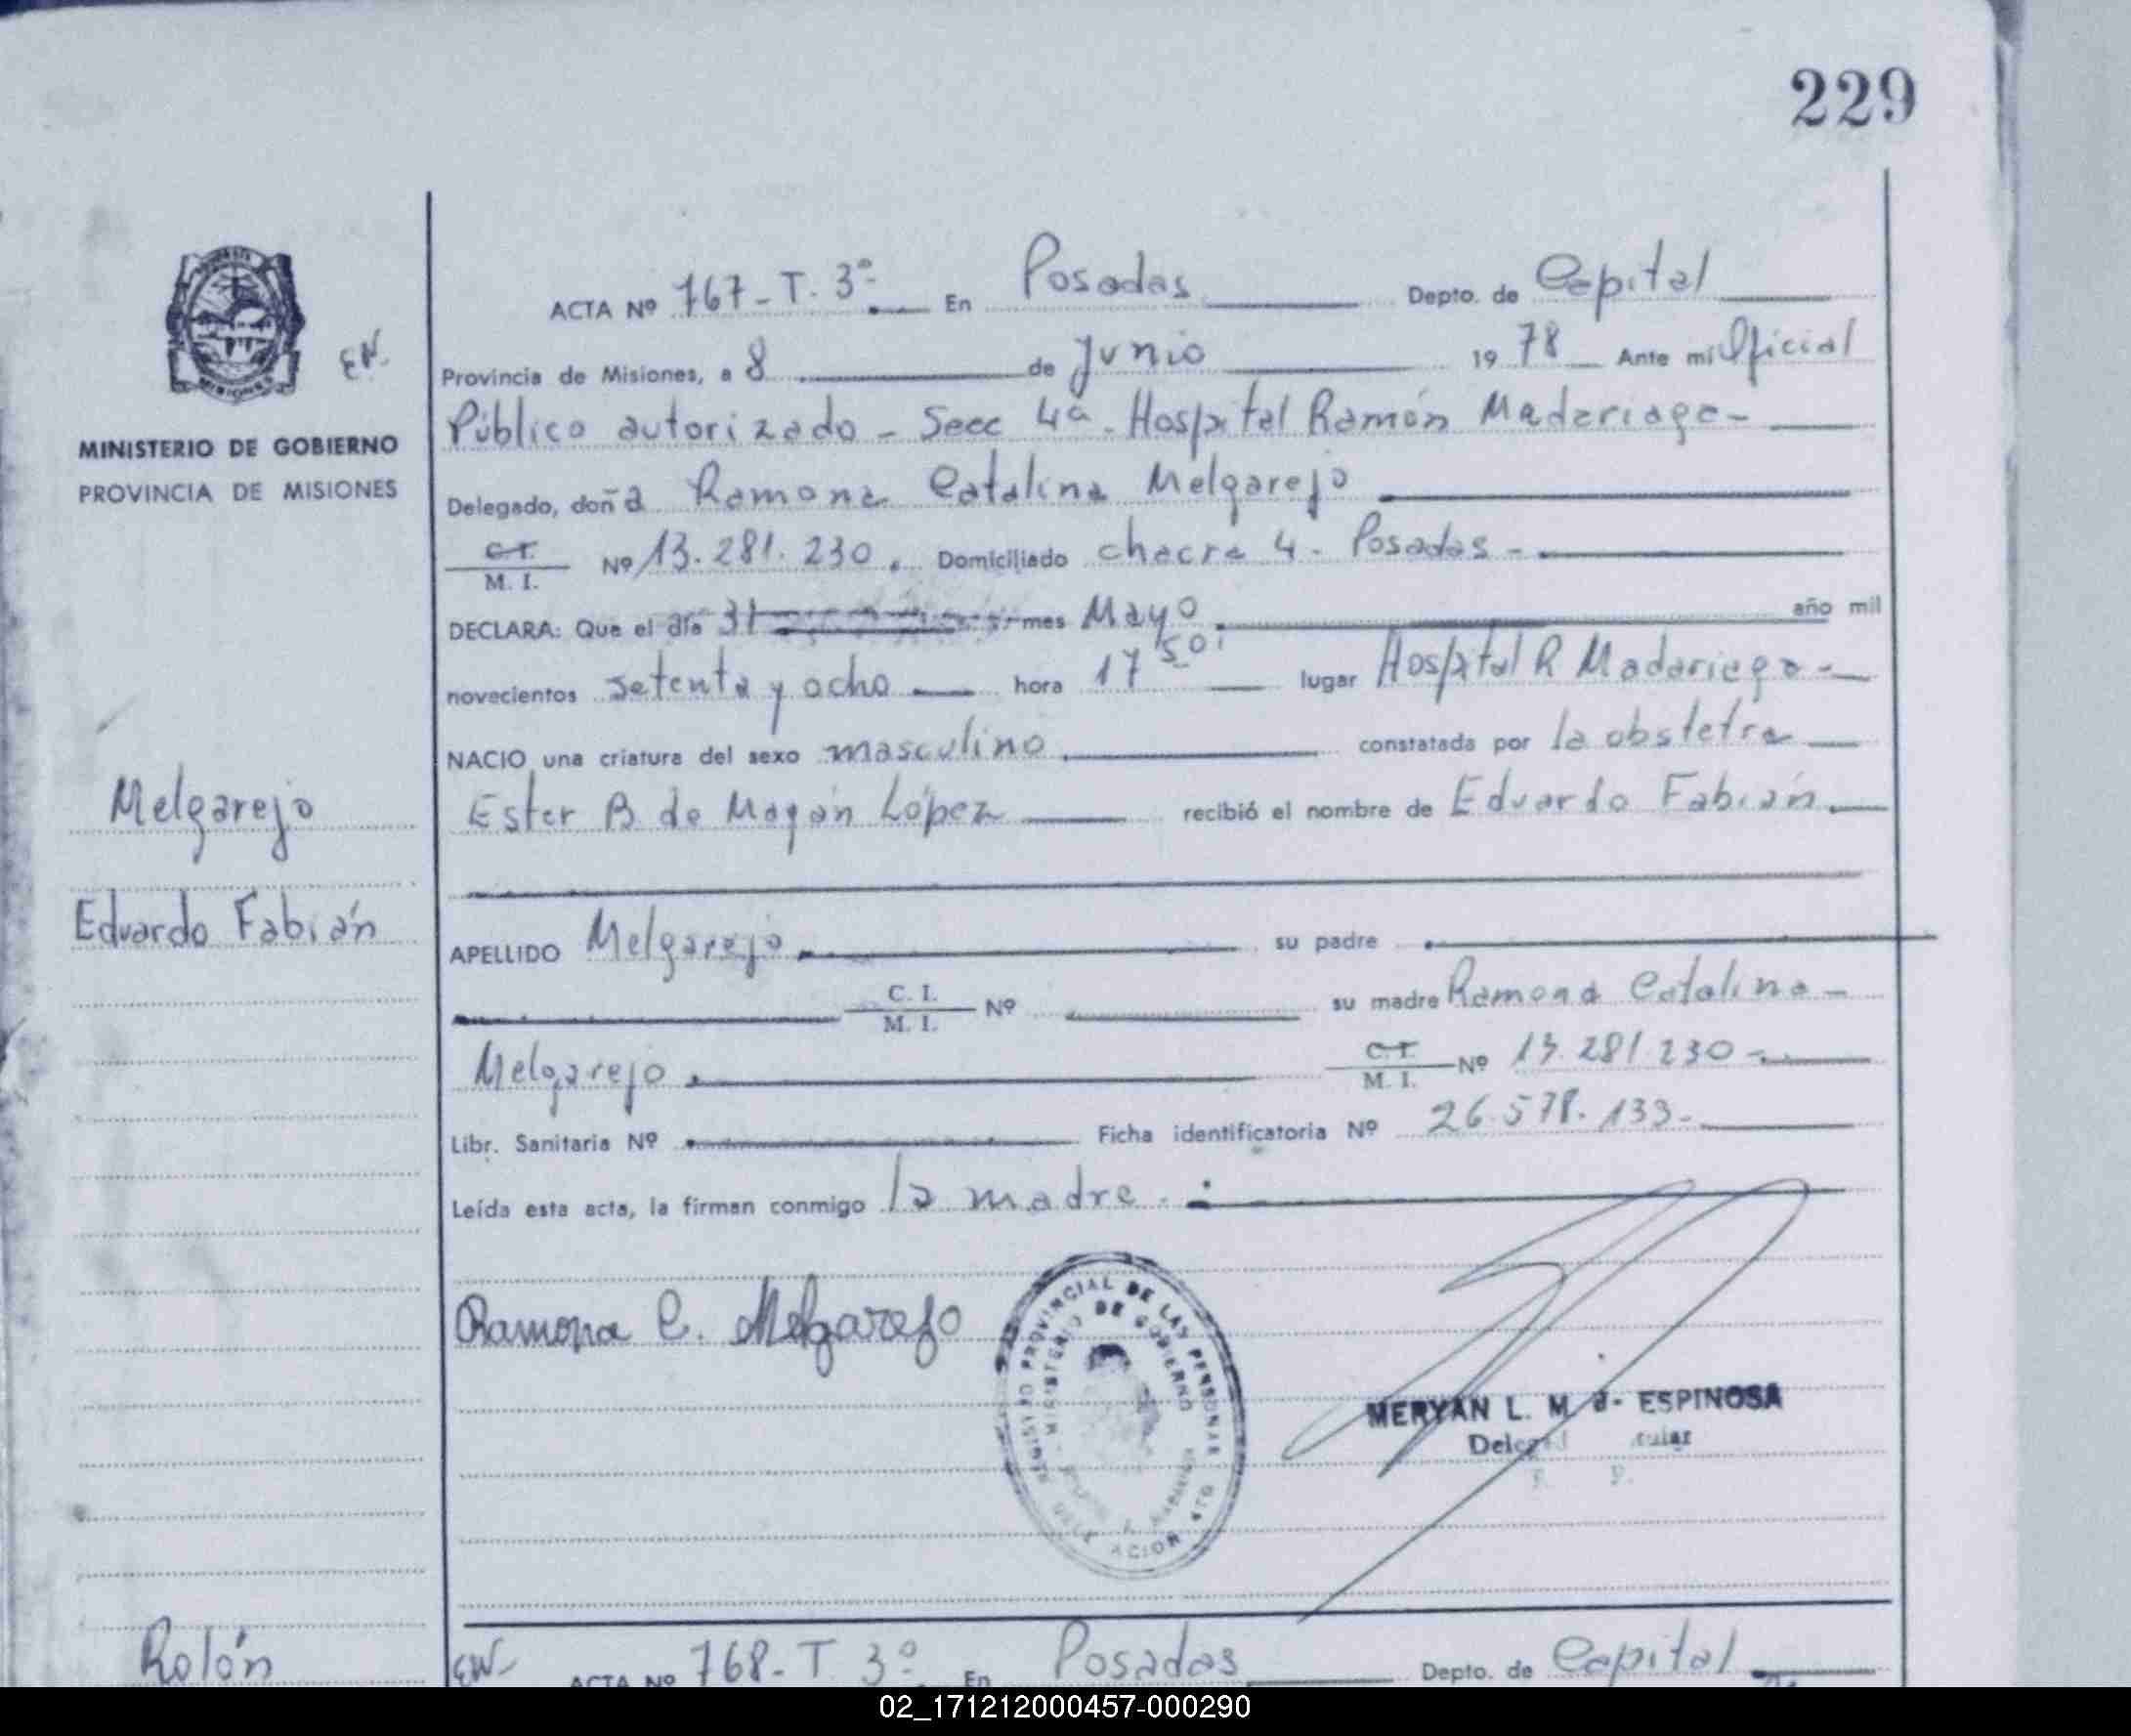 229
EN.
MINISTERIO DE GOBIERNO
PROVINCIA DE MISIONES
Melgarejo
Eduardo Fabián
ACTA Nº 767-T. 3º- En Posadas Depto. de Capital
Provincia de Misiones, a 8 de Junio 1978 Ante mí Oficial
Público autorizado - Secc 4ª - Hospital Ramón Madariaga -
Delegado, doña Ramona Catalina Melgarejo
C. I.
M. I. Nº 13.281.230. Domiciliado chacra 4 - Posadas -
DECLARA: Que el día 31 mes Mayo año mil
novecientos setenta y ocho hora 17 50 lugar Hospital R Madariaga -
NACIO una criatura del sexo masculino constatada por la obstetra
Ester B de Magán López recibió el nombre de Eduardo Fabián
APELLIDO Melgarejo su padre
C. I.
M. I. Nº su madre Ramona Catalina -
Melgarejo C. I.
M. I. Nº 13.281.230 -
Libr. Sanitaria Nº Ficha identificatoria Nº 26.578.133-
Leída esta acta, la firman conmigo la madre.
Ramona C. Melgarejo
PROVINCIAL DE LAS PERSONAS
MINISTERIO DE GOBIERNO
MERYAN L. M. de ESPINOSA
Rolón
EN-
ACTA Nº 768-T 3º En Posadas Depto. de Capital
02_171212000457-000290